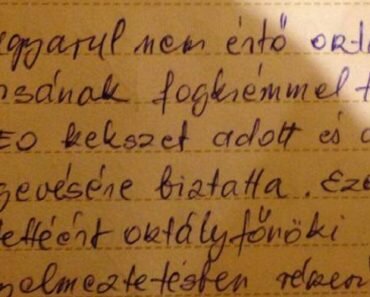 gyarul nem értő oszt
sának fogkrémmel t
EO kekszet adott és a
gevésére biztatta. Eze
tettéért osztályfőnöki
elmeztetésben részesí